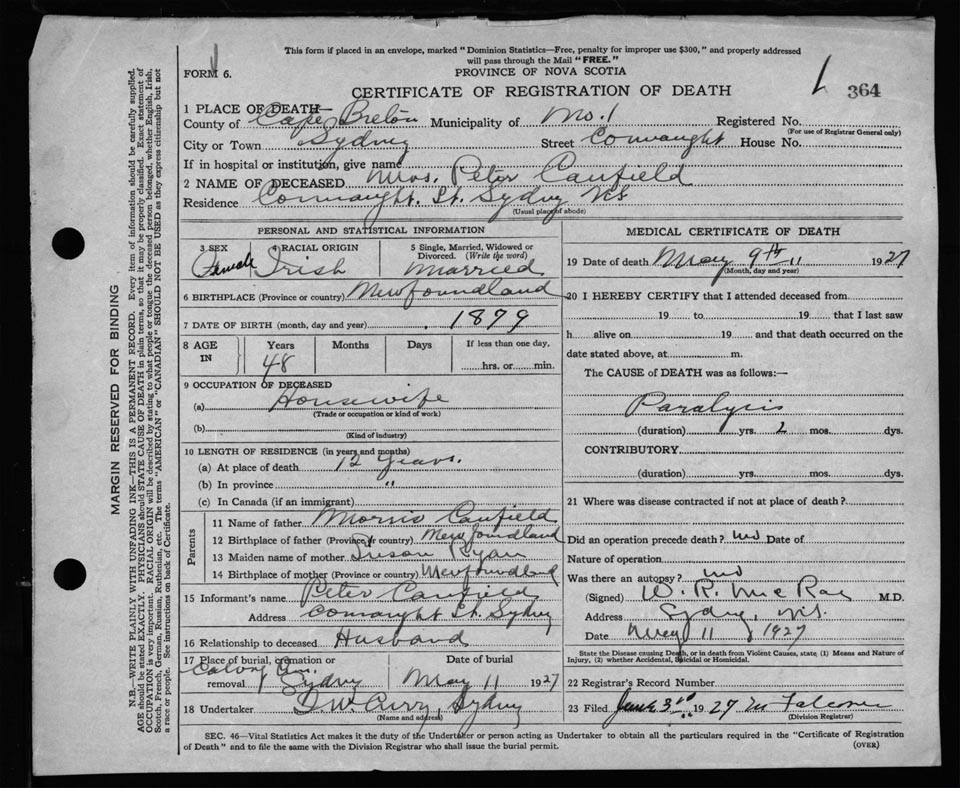 This form if placed in an envelope, marked "Dominion Statistics—Free, penalty for improper use $300," and properly addressed
will pass through the Mail "FREE."
FORM 6.
PROVINCE OF NOVA SCOTIA
CERTIFICATE OF REGISTRATION OF DEATH
364
1 PLACE OF DEATH—
County of Cape Breton Municipality of No. 1 Registered No.
(For use of Registrar General only)
City or Town Sydney Street Connaught House No.
If in hospital or institution, give name
2 NAME OF DECEASED Mrs. Peter Canfield
Residence Connaught. St. Sydney NS
(Usual place of abode)
PERSONAL AND STATISTICAL INFORMATION
3 SEX Female
4 RACIAL ORIGIN Irish
5 Single, Married, Widowed or Divorced. (Write the word) Married
6 BIRTHPLACE (Province or country) Newfoundland
7 DATE OF BIRTH (month, day and year) 1879
8 AGE IN Years 48 Months Days If less than one day, hrs. or min.
9 OCCUPATION OF DECEASED
(a) Housewife
(Trade or occupation or kind of work)
(b)
(Kind of industry)
10 LENGTH OF RESIDENCE (in years and months)
(a) At place of death 12 years.
(b) In province "
(c) In Canada (if an immigrant)
Parents
11 Name of father Morris Canfield
12 Birthplace of father (Province or country) Newfoundland
13 Maiden name of mother Susan Ryan
14 Birthplace of mother (Province or country) Newfoundland
15 Informant's name Peter Canfield
Address Connaught St. Sydney
16 Relationship to deceased Husband
17 Place of burial, cremation or removal Sydney
Date of burial May 11 1927
18 Undertaker Curry, Sydney
(Name and address)
MEDICAL CERTIFICATE OF DEATH
19 Date of death May 9th 1927
(Month, day and year)
20 I HEREBY CERTIFY that I attended deceased from
19 to 19 that I last saw
h alive on 19 and that death occurred on
date stated above, at m.
The CAUSE of DEATH was as follows:—
Paralysis
(duration) yrs. 2 mos. dys.
CONTRIBUTORY
(duration) yrs. mos. dys.
21 Where was disease contracted if not at place of death?
Did an operation precede death? no Date of
Nature of operation
Was there an autopsy? no
(Signed) W. R. McRae M.D.
Address Sydney, N.S.
Date May 11 1927
State the Disease causing Death, or in death from Violent Causes, state (1) Means and Nature of
Injury, (2) whether Accidental, Suicidal or Homicidal.
22 Registrar's Record Number
23 Filed June 3rd 1927 M Falconer
(Division Registrar)
SEC. 46—Vital Statistics Act makes it the duty of the Undertaker or person acting as Undertaker to obtain all the particulars required in the "Certificate of Registration
of Death" and to file the same with the Division Registrar who shall issue the burial permit.
(OVER)
MARGIN RESERVED FOR BINDING
N.B.—WRITE PLAINLY, WITH UNFADING INK—THIS IS A PERMANENT RECORD. Every item of information should be carefully supplied.
AGE should be stated EXACTLY. PHYSICIANS should STATE CAUSE OF DEATH in plain terms, so that it may be properly classified. Exact statement of
OCCUPATION is very important. RACIAL ORIGIN will be described by stating to what people or tongue the deceased person belonged, whether English, Irish,
Scotch, French, German, Russian, Ruthenian, etc. The terms "AMERICAN" or "CANADIAN" SHOULD NOT BE USED as they express citizenship but not
a race or people. See instructions on back of Certificate.